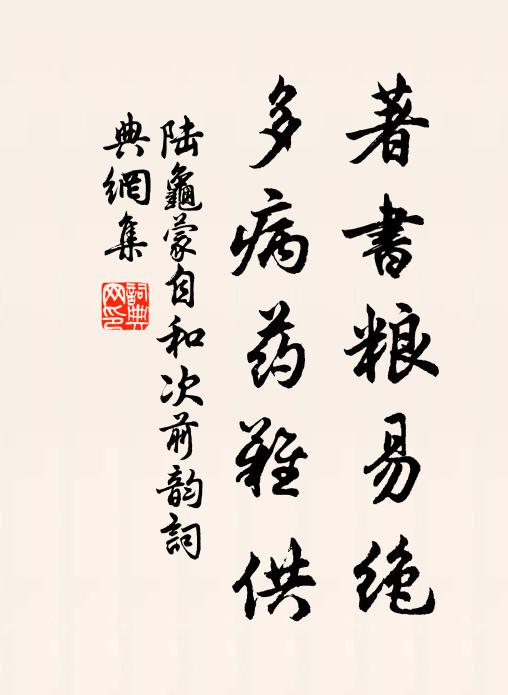 著書粮易絶
多病药難供
陆龜蒙自和次前韵詞
典網集
詞典网印